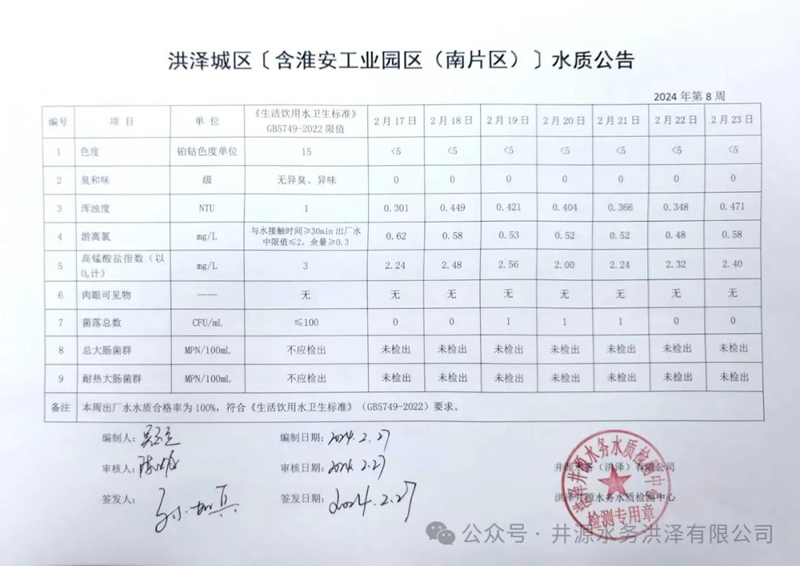 洪泽城区〔含淮安工业园区（南片区）〕水质公告
2024 年第 8 周
编号 项 目 单 位 《生活饮用水卫生标准》GB5749-2022 限值 2 月 17 日 2 月 18 日 2 月 19 日 2 月 20 日 2 月 21 日 2 月 22 日 2 月 23 日
1 色度 铂钴色度单位 15 <5 <5 <5 <5 <5 <5 <5
2 臭和味 级 无异臭、异味 0 0 0 0 0 0 0
3 浑浊度 NTU 1 0.301 0.449 0.421 0.404 0.366 0.348 0.471
4 游离氯 mg/L 与水接触时间≥30min 出厂水中限值≤2，余量≥0.3 0.62 0.58 0.53 0.52 0.52 0.48 0.58
5 高锰酸盐指数（以O₂计） mg/L 3 2.24 2.48 2.56 2.00 2.24 2.32 2.40
6 肉眼可见物 —— 无 无 无 无 无 无 无 无
7 菌落总数 CFU/mL ≤100 0 0 1 1 1 0 0
8 总大肠菌群 MPN/100mL 不应检出 未检出 未检出 未检出 未检出 未检出 未检出 未检出
9 耐热大肠菌群 MPN/100mL 不应检出 未检出 未检出 未检出 未检出 未检出 未检出 未检出
备注 本周出厂水水质合格率为 100%，符合《生活饮用水卫生标准》（GB5749-2022）要求。
编制人： 编制日期：2024.2.27
审核人： 审核日期：2024.2.27
签发人： 签发日期：2024.2.27
井源水务（洪泽）有限公司
洪泽井源水务水质检测中心
洪泽井源水务水质检测中心
检测专用章
公众号 · 井源水务洪泽有限公司